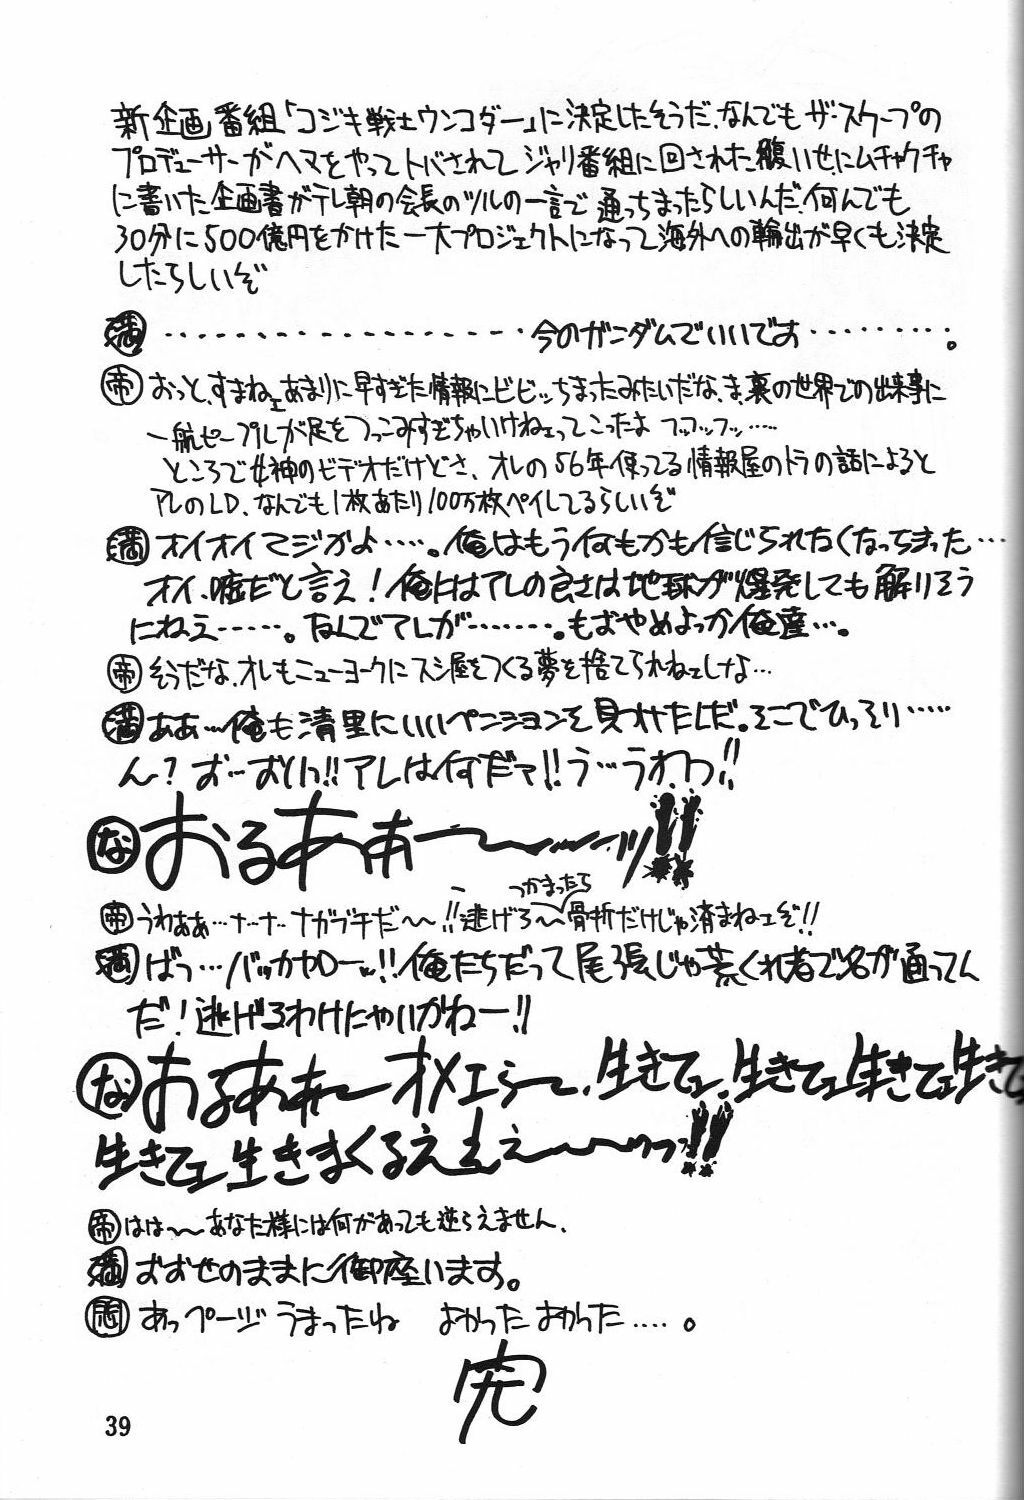 新企画番組「コジキ戦士ウンコダー」に決定したそうだ、なんでもザ・スクープの
プロデューサーがヘマをやってトバされてジャリ番組に回された腹いせにムチャクチャ
に書いた企画書がテレ朝の会長のツルの一言で通っちまったらしいんだ、何んでも
30分に500億円をかけた一大プロジェクトになって海外への輸出が早くも決定
したらしいぞ
満 ・・・・・・・・・・・・・・・・・今のガンダムでいいです・・・・・・・・。
帝 おっと、すまねェあまりに早すぎた情報にビビッちまったみたいだな、ま、裏の世界での出来事に
一般ピープルが足をつっこみすぎちゃいけねェってこったよ フッフッフッ・・・・・
ところで女神のビデオだけどさ、オレの56年使ってる情報屋のトラの話によると
アレのLD、なんでも1枚あたり100万枚ペイしてるらしいぞ
満 オイオイマジかよ・・・・・。俺はもう何もかも信じられなくなっちまった・・・
オイ、嘘だと言え!俺にはアレの良さは地球が爆発しても解りそう
にねえ・・・・・。なんでアレが・・・・・・・。もおやめよっか俺達・・・。
帝 そうだな、オレもニューヨークにスシ屋をつくる夢を捨てられねェしなよ・・・
満 ああ・・・俺も清里にいいペンションを見つけたんだ。そこでひっそり・・・・・
ん?おーおいっ!!アレは何だァ!!う・・・うわっ!!
な おるあぁー〜〜〜ッ!!
つかまったら
帝 うわぁぁ・・・ナ・・ナ・・ナガブチだ〜〜!!逃げろ〜〜骨折だけじゃ済まねェぞ!!
満 ばっ・・・バッカヤローッ!!俺たちだって尾張じゃ荒くれ者で名が通ってん
だ!逃げるわけにゃいかねー!!
な おるあぁ〜オメェら〜、生きてェ、生きてェ生きてェ生きて
生きてェ生きまくるえぇぇ〜〜〜ゥっっ!!
帝 はは〜〜あなた様には何があっても逆らえません、
満 おおせのままに御座います。
あっページうまったね よかったよかった・・・・。
完
39